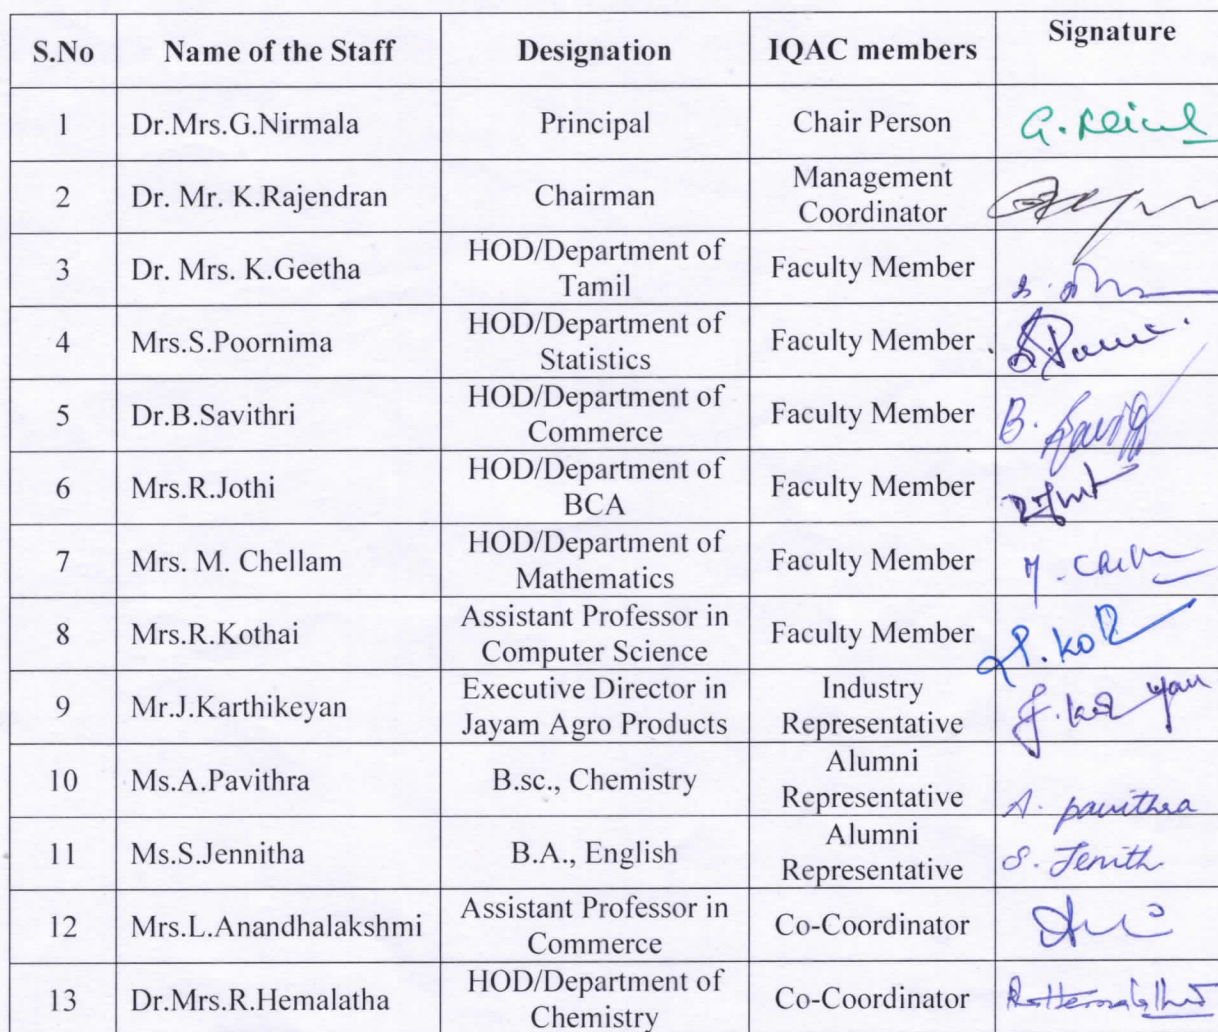 S.No Name of the Staff Designation IQAC members Signature
1 Dr.Mrs.G.Nirmala Principal Chair Person G.
2 Dr. Mr. K.Rajendran Chairman Management
Coordinator
3 Dr. Mrs. K.Geetha HOD/Department of
Tamil Faculty Member
4 Mrs.S.Poornima HOD/Department of
Statistics Faculty Member
5 Dr.B.Savithri HOD/Department of
Commerce Faculty Member B.
6 Mrs.R.Jothi HOD/Department of
BCA Faculty Member
7 Mrs. M. Chellam HOD/Department of
Mathematics Faculty Member
8 Mrs.R.Kothai Assistant Professor in
Computer Science Faculty Member
9 Mr.J.Karthikeyan Executive Director in
Jayam Agro Products Industry
Representative
10 Ms.A.Pavithra B.sc., Chemistry Alumni
Representative A. pavithra
11 Ms.S.Jennitha B.A., English Alumni
Representative S. Jenith
12 Mrs.L.Anandhalakshmi Assistant Professor in
Commerce Co-Coordinator
13 Dr.Mrs.R.Hemalatha HOD/Department of
Chemistry Co-Coordinator